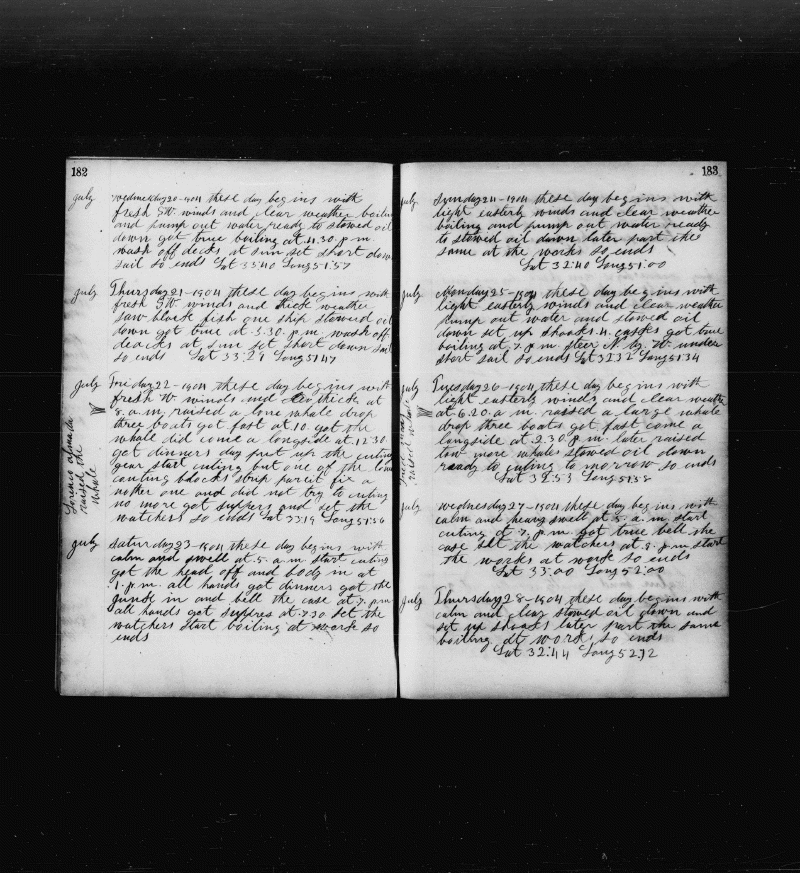 182
july wednesday 20-1904 these day begins with
fresh SW. winds and clear weather boiling
and pump out water ready to stowed oil
down got true boiling at 4.30. p.m.
wash off decks at sun set short down
sail so ends Lat 33:40 Long 51:57
july Thursday 21-1904 these day begins with
fresh SW. winds and thick weather
saw black fish one ship stowed oil
down got true at 3.30. p.m. wash off
deacks at sun set short down sail
so ends Lat 33:29 Long 51:47
july Friday 22-1904 these day begins with
fresh W. winds and thick at
8. a.m. raised a lone whale drop
three boats got fast at 10. got the
whale did come a longside at 12.30
got dinners day put up the cuting
gear start cuting but one of the low
cauting blocks strip fix a
nother one and did not try to cuting
no more got suppers and set the
watchers so ends Lat 33:19 Long 51:56
Lorenco
raised the
whale
july Saturday 23-1904 these day begins with
calm and swell at 5. a.m start cuting
got the head off and body in at
1. p.m. all hands got dinners got the
junk in and bell the case at 7. p.m
all hands got suppers at 7.30 set the
watchers start boiling at work so
ends
183
july Sunday 24-1904 these day begins with
light easterly winds and clear weather
boiling and pump out water ready
to stowed oil down later part the
same at the works so ends
Lat 32:40 Long 51:00
july Monday 25-1904 these day begins with
light easterly winds and clear weather
pump out water and stowed oil
down set up shooks 4. casks got true
boiling at 7. p.m steer N. by. W. under
short sail so ends Lat 32:32 Long 51:34
july Tuesday 26-1904 these day begins with
light easterly winds and clear weather
at 6.20. a.m. raised a large whale
drop three boats got fast come a
longside at 2.30. p.m. later raised
tow more whales stowed oil down
ready to cuting to morrow so ends
Lat 32:53 Long 51:58
raised whale
july wednesday 27-1904 these day begins with
calm and heavy swell at 5. a.m. start
cuting at 7. p.m got true bell the
case set the watchers at 8. p.m start
the works at work so ends
Lat 33:00 Long 52:00
july Thursday 28-1904 these day begins with
calm and clear stowed oil down and
set up shooks later part the same
boiling at work so ends
Lat 32:44 Long 52:12